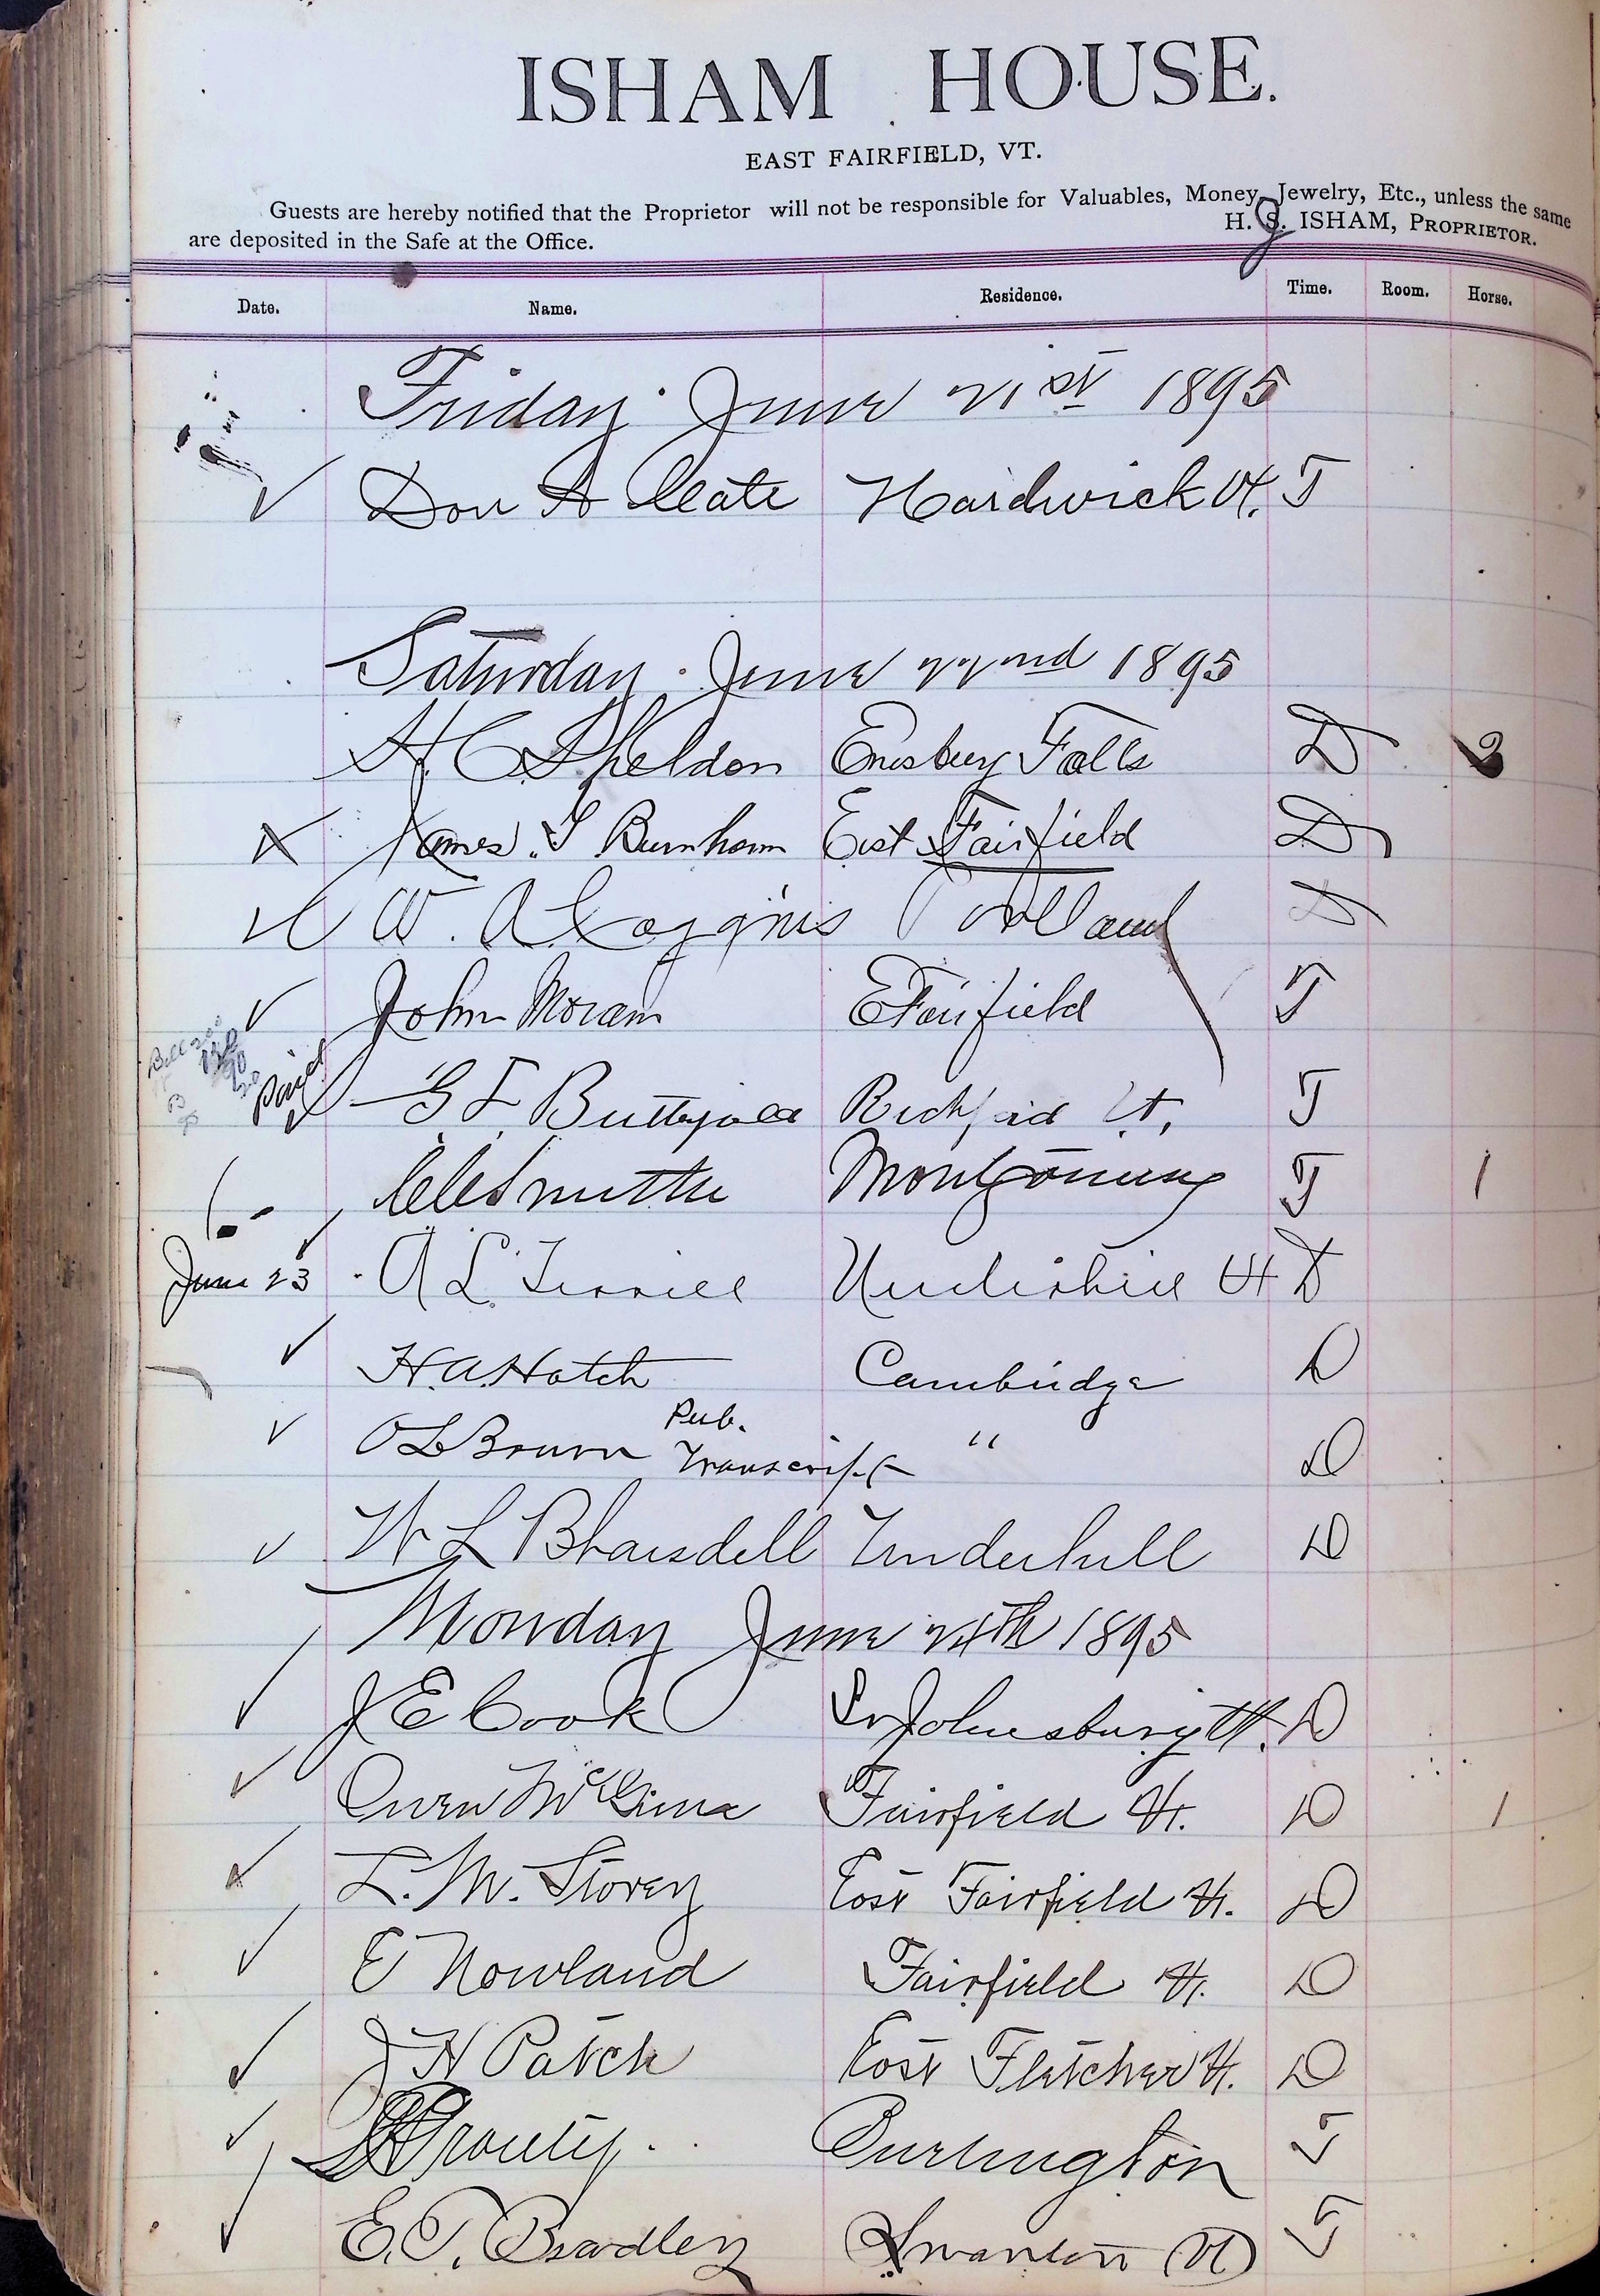 ISHAM HOUSE.
EAST FAIRFIELD, VT.
Guests are hereby notified that the Proprietor will not be responsible for Valuables, Money, Jewelry, Etc., unless the same
are deposited in the Safe at the Office. H. S. ISHAM, PROPRIETOR.
Date. Name. Residence. Time. Room. Horse.
Friday June 21st 1895
Don A Cate Hardwick Vt. T
Saturday June 22nd 1895
H. C. Sheldon Enosburg Falls D 2
James Burnham East Fairfield D
W. A. Coggins Portland D
John Moran E Fairfield T
Paid G Butterfield Richford Vt. T
Smith Montgomery T 1
June 23 A L. Terrill Underhill Vt D
H. A. Hatch Cambridge D
O L Brown Pub. Transcript " D
W L Blaisdell Underhill D
Monday June 24th 1895
J E Cook St Johnsbury Vt. D
Owen McGinn Fairfield Vt. D 1
L. M. Storey East Fairfield Vt. D
E Nowland Fairfield Vt. D
J H Patch East Fletcher Vt. D
Prouty Burlington T
E. T. Bradley Swanton Vt T